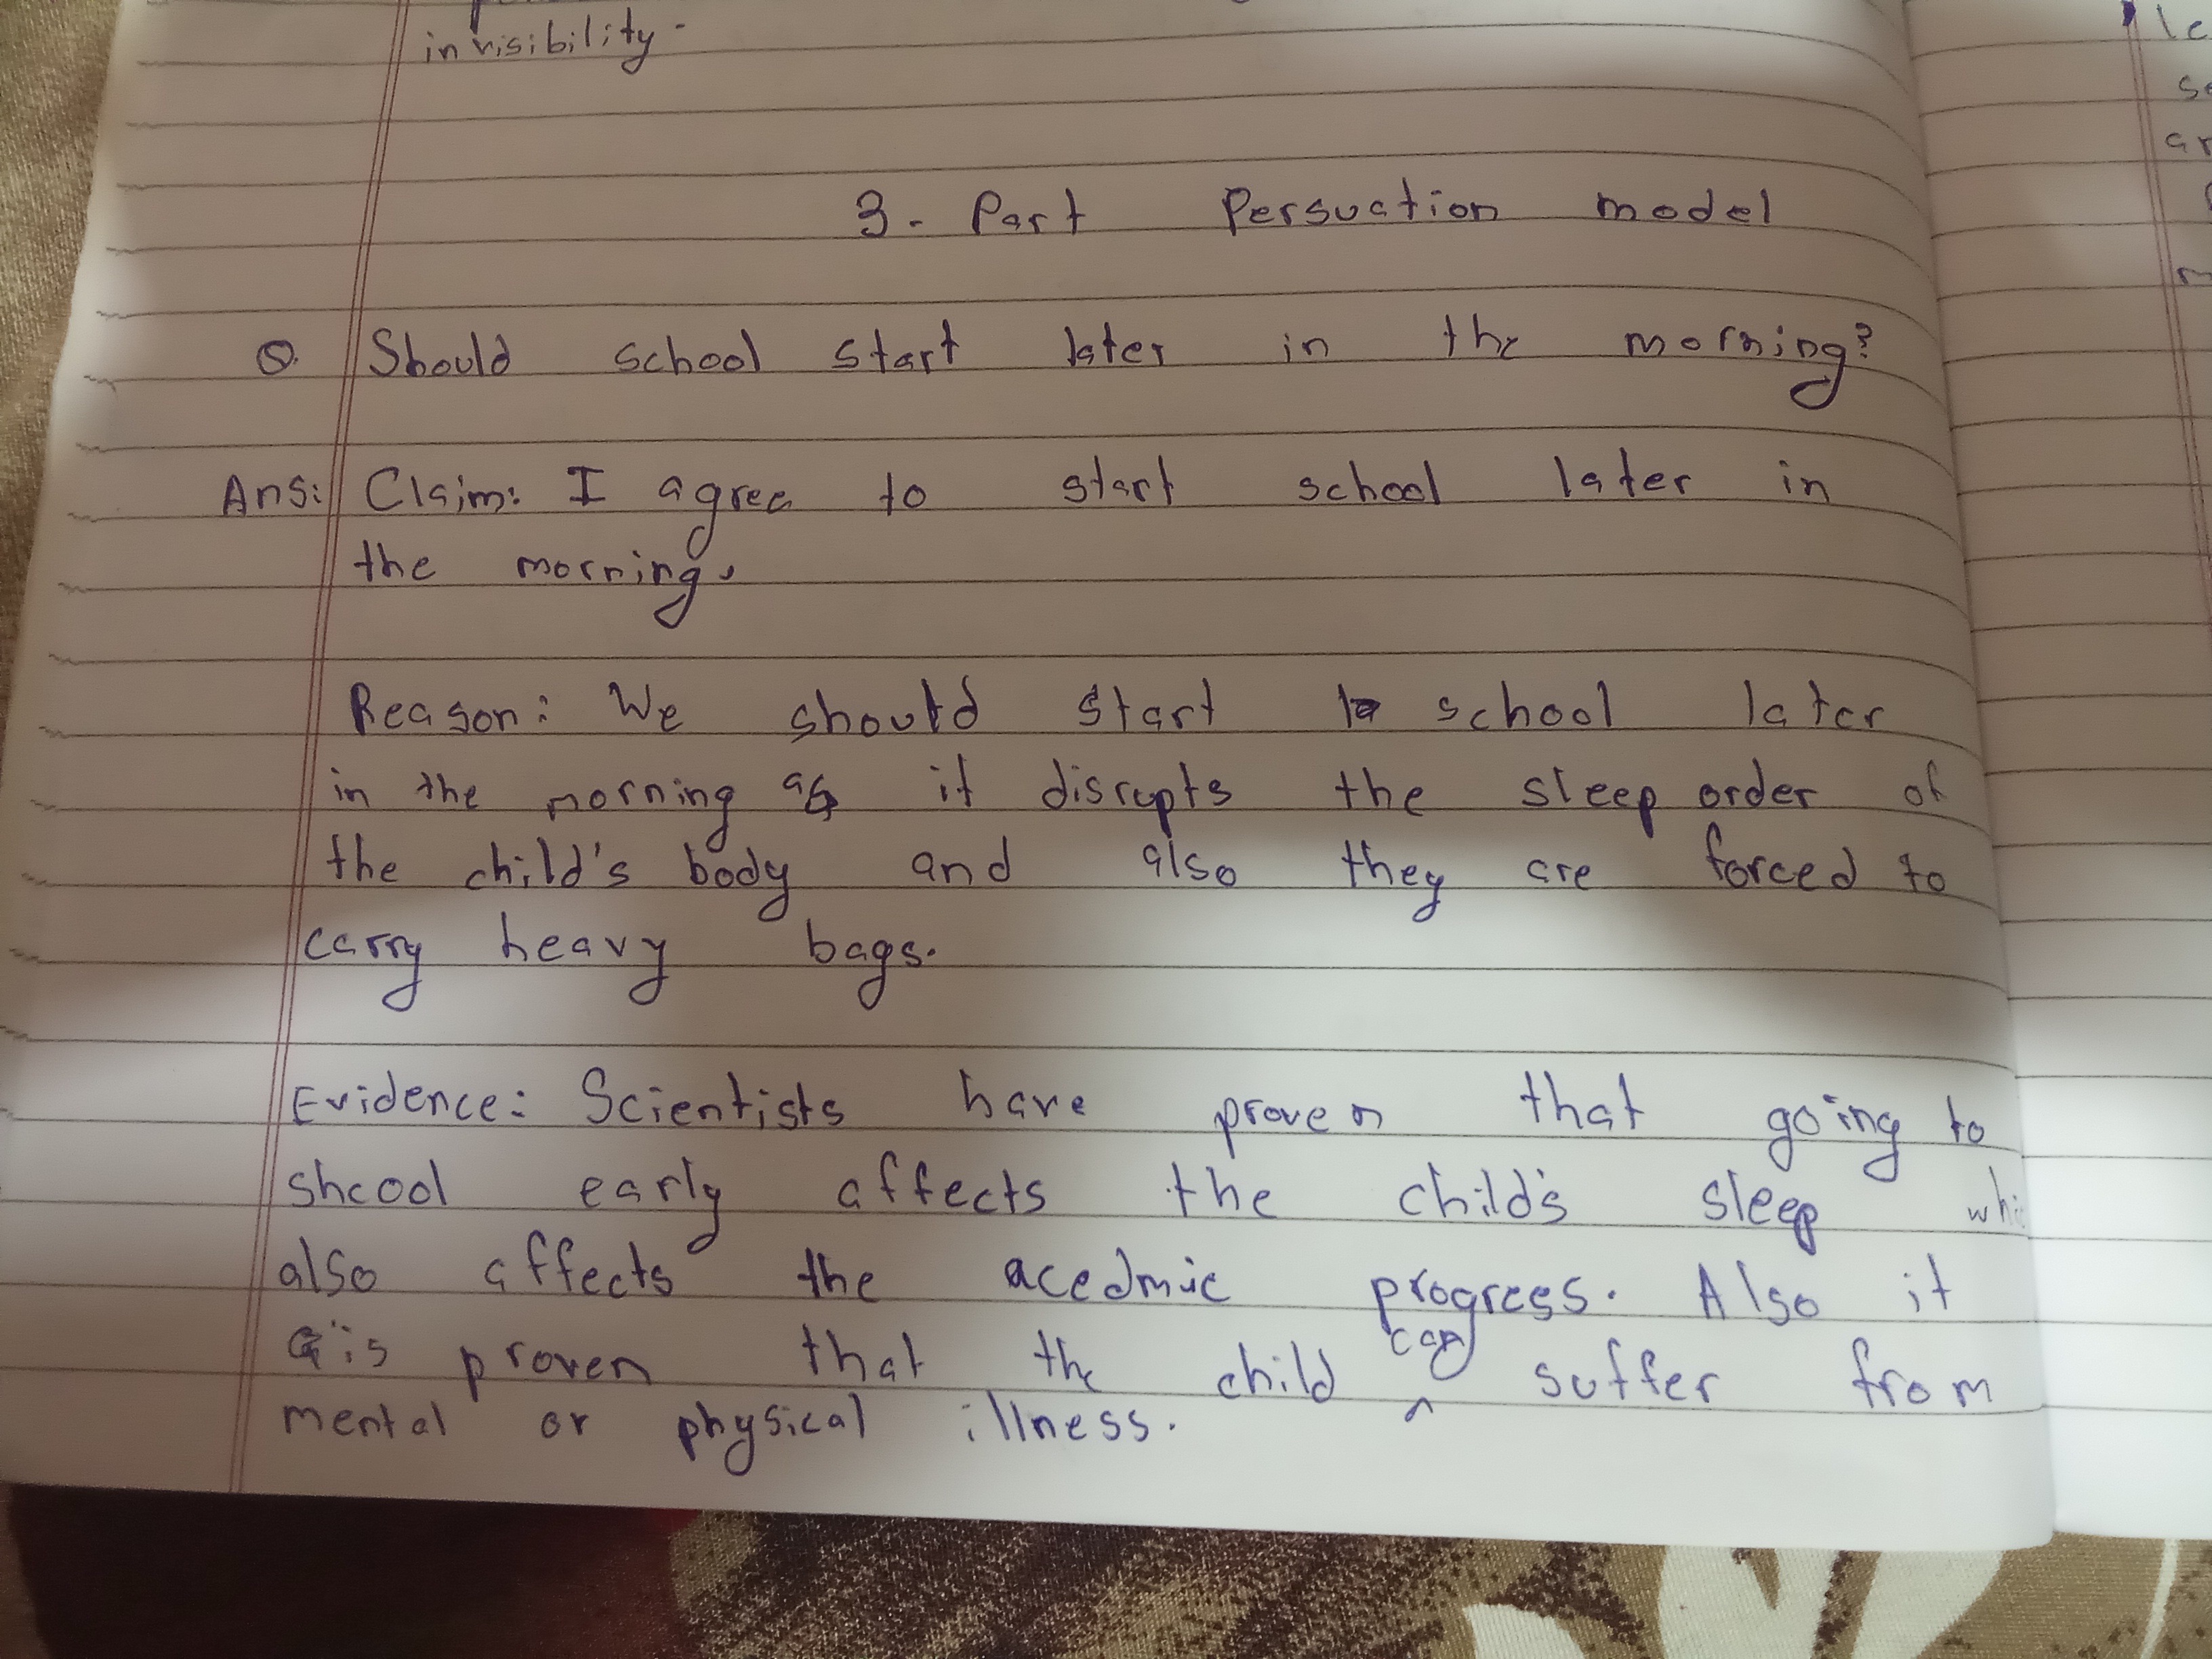 invisibility.
3- Part Persuation model
Q. Should school start later in the morning?
Ans: Claim: I agree to start school later in
the morning.
Reason: We should start school later
in the morning as it disrupts the sleep order of
the child's body and also they are forced to
carry heavy bags.
Evidence: Scientists have proven that going to
shcool early affects the child's sleep
also affects the acedmic progress. Also it
is proven that the child can suffer from
mental or physical illness.